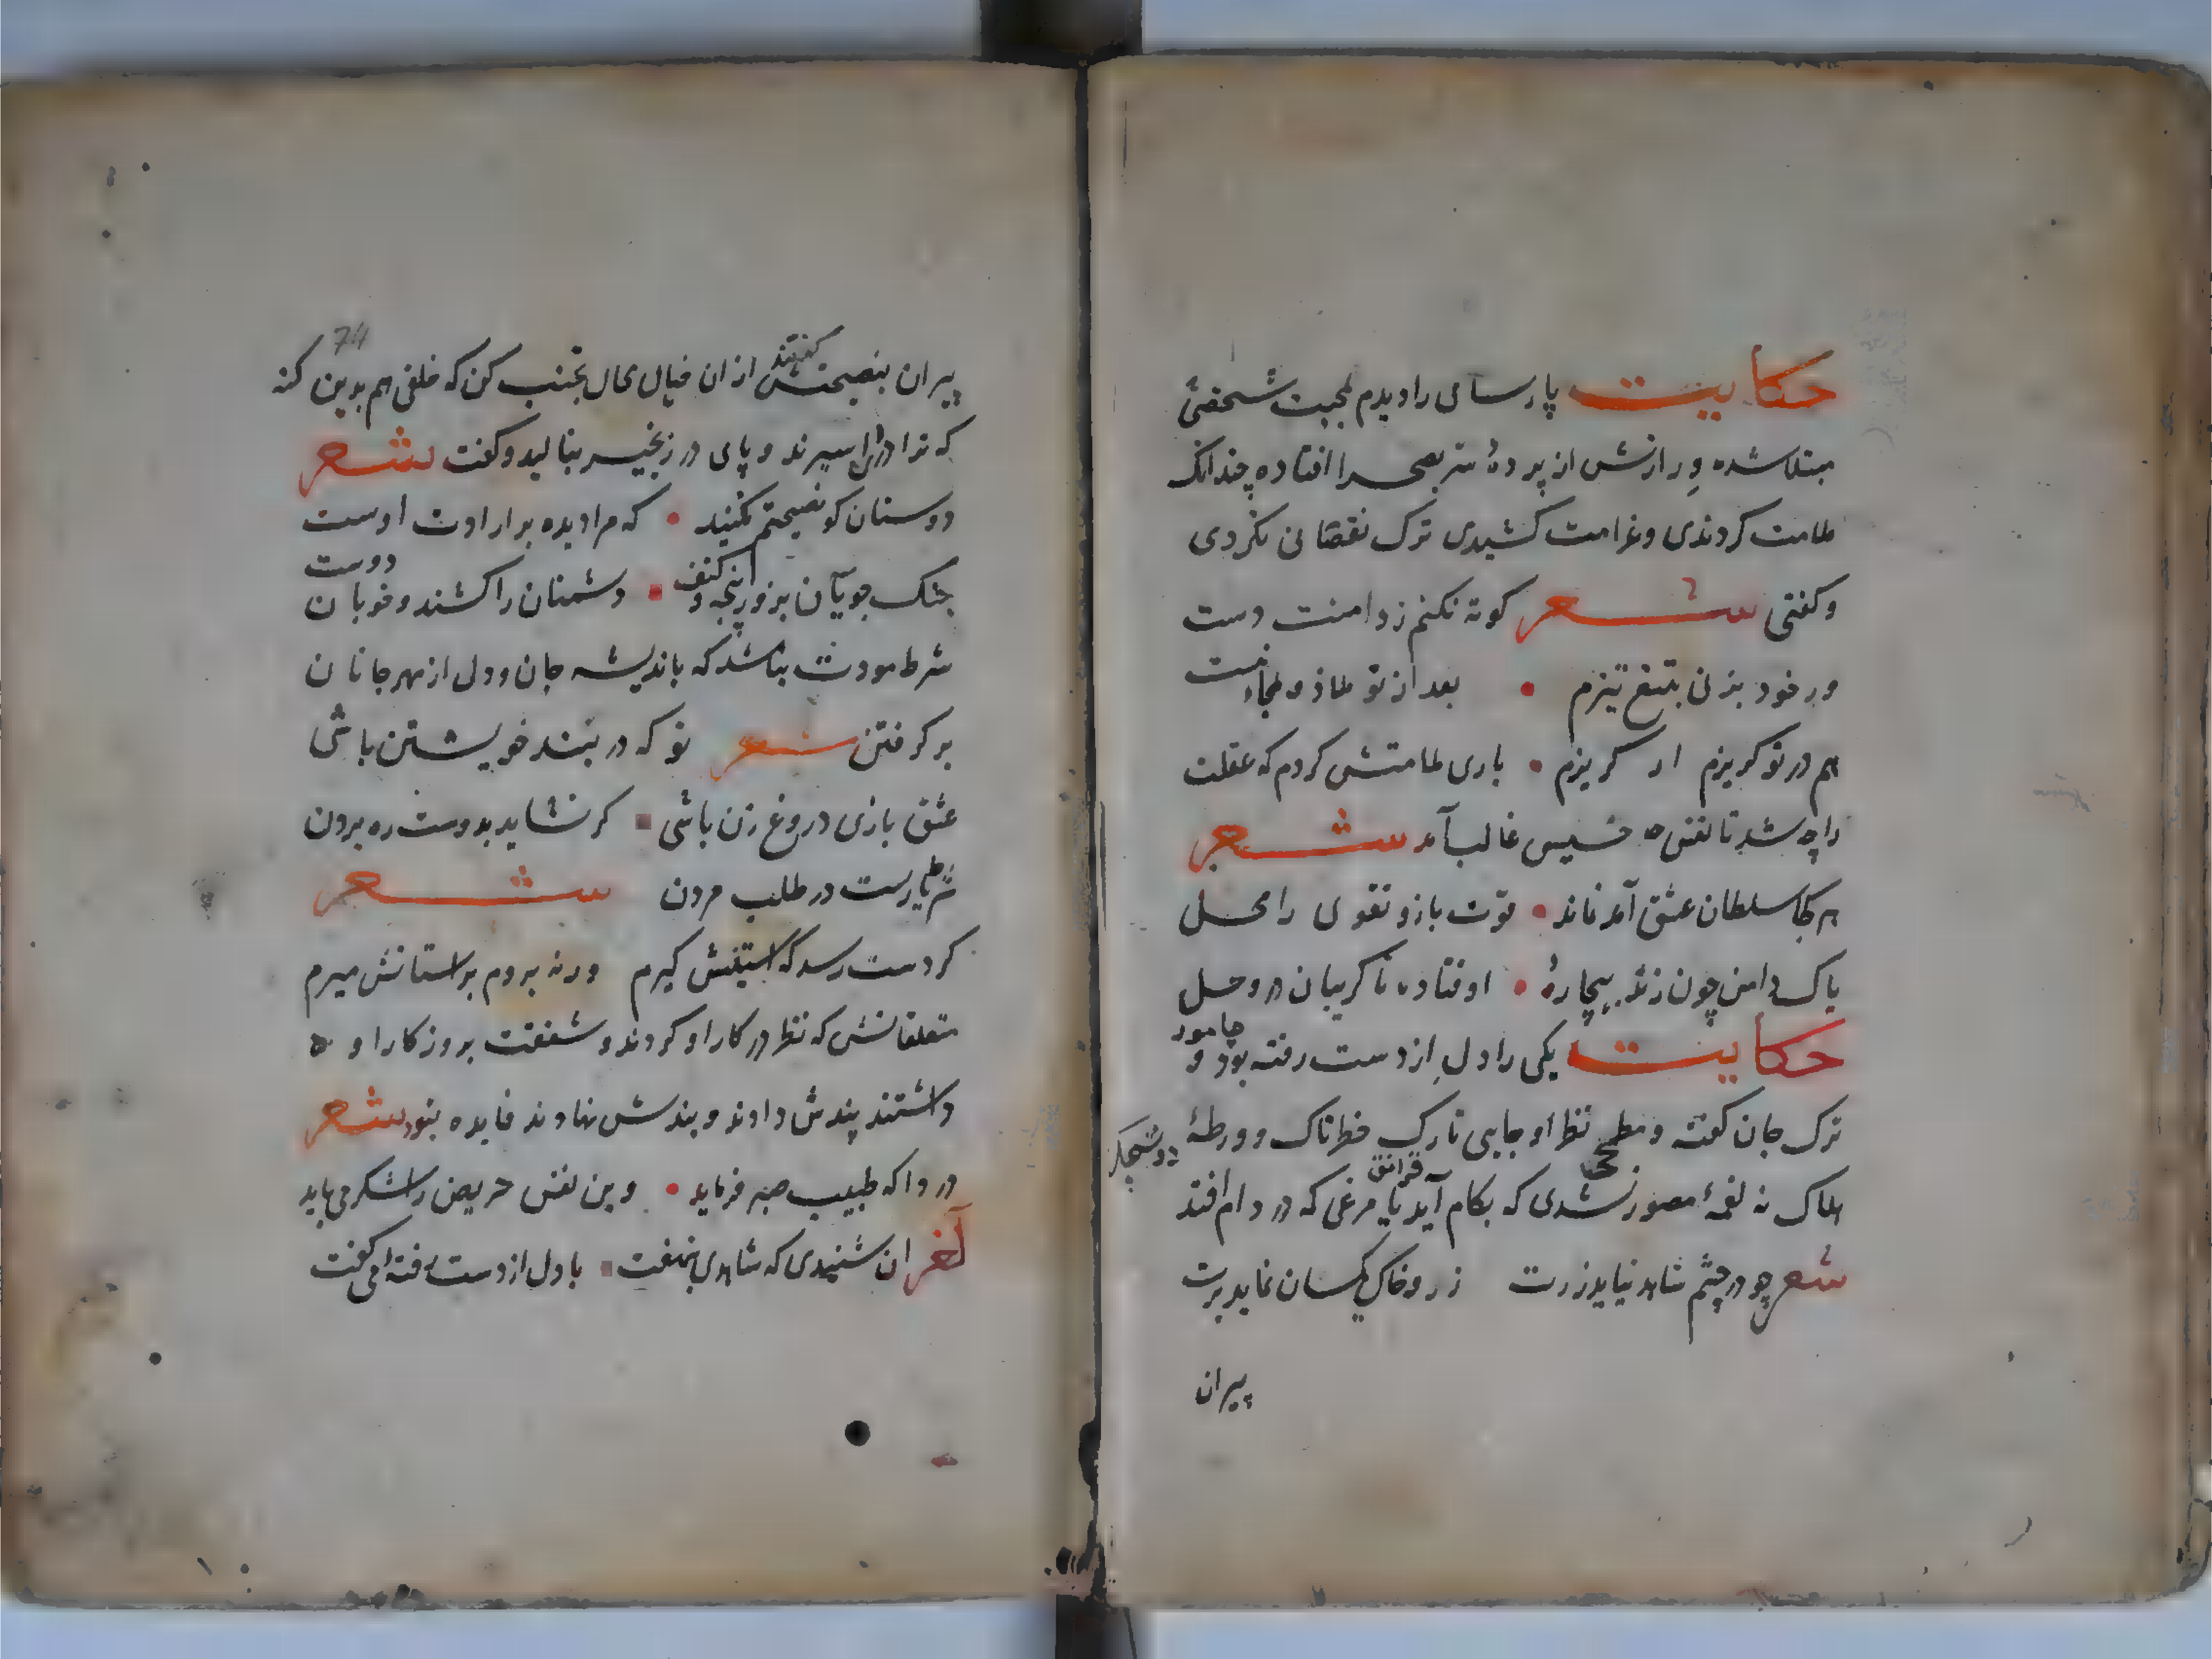 حکایت پارسای را دیدم بمحبت شخصی
مبتلا شده و رازش از پردۀ ستر بصحرا افتاده چندانک
ملامت کردندی و غرامت کشیدی ترک نقصانی نکردی
وکفتی شعر کوته نکنم ز دامنت دست
ور خود بزنی بتیغ تیزم • بعد از تو ملاذ و ملجاء نیست
هم در تو کریزم ار کریزم • باری ملامتش کردم که عقلت
را چه شد تا نفس خسیس غالب آمد شعر
هر کجا سلطان عشق آمد نماند • قوت بازو تقوی را محل
پاک دامن چون زند بیچارۀ • اوفتاده تا کریبان در وحل
حکایت یکی را دل از دست رفته بود و
ترک جان کفته و مطمح نظر او جایی تارک خطرناک و ورطۀ
هلاک نه لقمۀ مصور شدی که بکام آید یا مرغی که در دام افتد
شعر چو در چشم شاهد نیاید زرت زر و خاک یکسان نماید برت
پیران
74
پیران بنصیحتش کفتند از ان خیال محال تجنب کن که خلقی هم بدین کنه
که تو داری اسیرند و پای در زنجیر بنالید و کفت شعر
دوستان کو نصیحتم نکنید • که مرا دیده بر ارادت اوست
جنک جویان بزور پنجه و کتف • دشمنان را کشند و خوبان دوست
شرط مودت نباشد که باندیشه جان و دل از مهر جانان
بر کرفتن شعر تو که در بند خویشتن باشی
عشق بازی دروغ زن باشی • کر نشاید بدوست ره بردن
شرط یاریست در طلب مردن شعر
کر دست رسد که استینش کیرم ورنه بروم بر استانش میرم
متعلقانش که نظر در کار او کردند و شفقت بروزکار او
داشتند پندش دادند و بندش نهادند فایده نبود شعر
دردا که طبیب صبر فرماید • وین نفس حریص را شکر می باید
آخر ان شنیدی که شاهدی بنهفت • با دل از دست رفتۀ می کفت